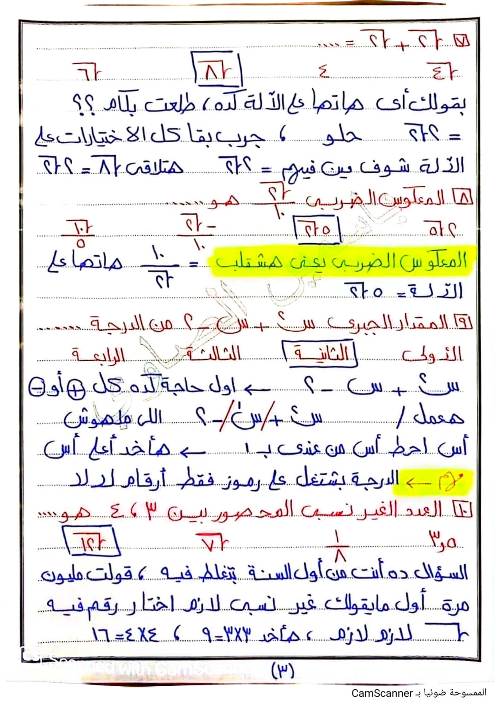 ٧ √٢ + √٢ = ....
√٤ ٤ √٨ √٦
بقولك أى هاتها ع الآلة كده، طلعت بكام ؟؟
= ٢√٢ حلو ، جرب بقا كل الاختيارات على
الآلة شوف مين فيهم = ٢√٢ هتلاقى √٨ = ٢√٢
٨ المعكوس الضربى √٢/١٠ هو ......
٢√٥ ٥√٢ -√٢/١٠ √١٠/٥
المعكوس الضربى يعنى هشقلب = ١٠/√٢ هاتها على
الآلة = ٥√٢
٩ المقدار الجبرى س٢ + س - ٢ من الدرجة ......
الأولى الثانية الثالثة الرابعة
س٢ + س - ٢ ← اول حاجة كده كل + أو -
هعمل / س٢ +/ س /- ٢ اللى ملهوش
أس احط أس من عندى بـ ١ ← هأخد أعلى أس
مهم ← الدرجة بشتغل ع رموز فقط أرقام لا لا
١٠ العدد الغير نسبى المحصور بين ٣ ، ٤ هو ....
٣,٥ ١/٨ √٧ √١٢
السؤال ده أنت من أول السنة بتغلط فيه ، قولت مليون
مرة أول مايقولك غير نسبى لازم اختار رقم فيه
√ لازم لازم ، هأخد ٣×٣=٩ ، ٤×٤=١٦
(٣)
الممسوحة ضوئيا بـ CamScanner